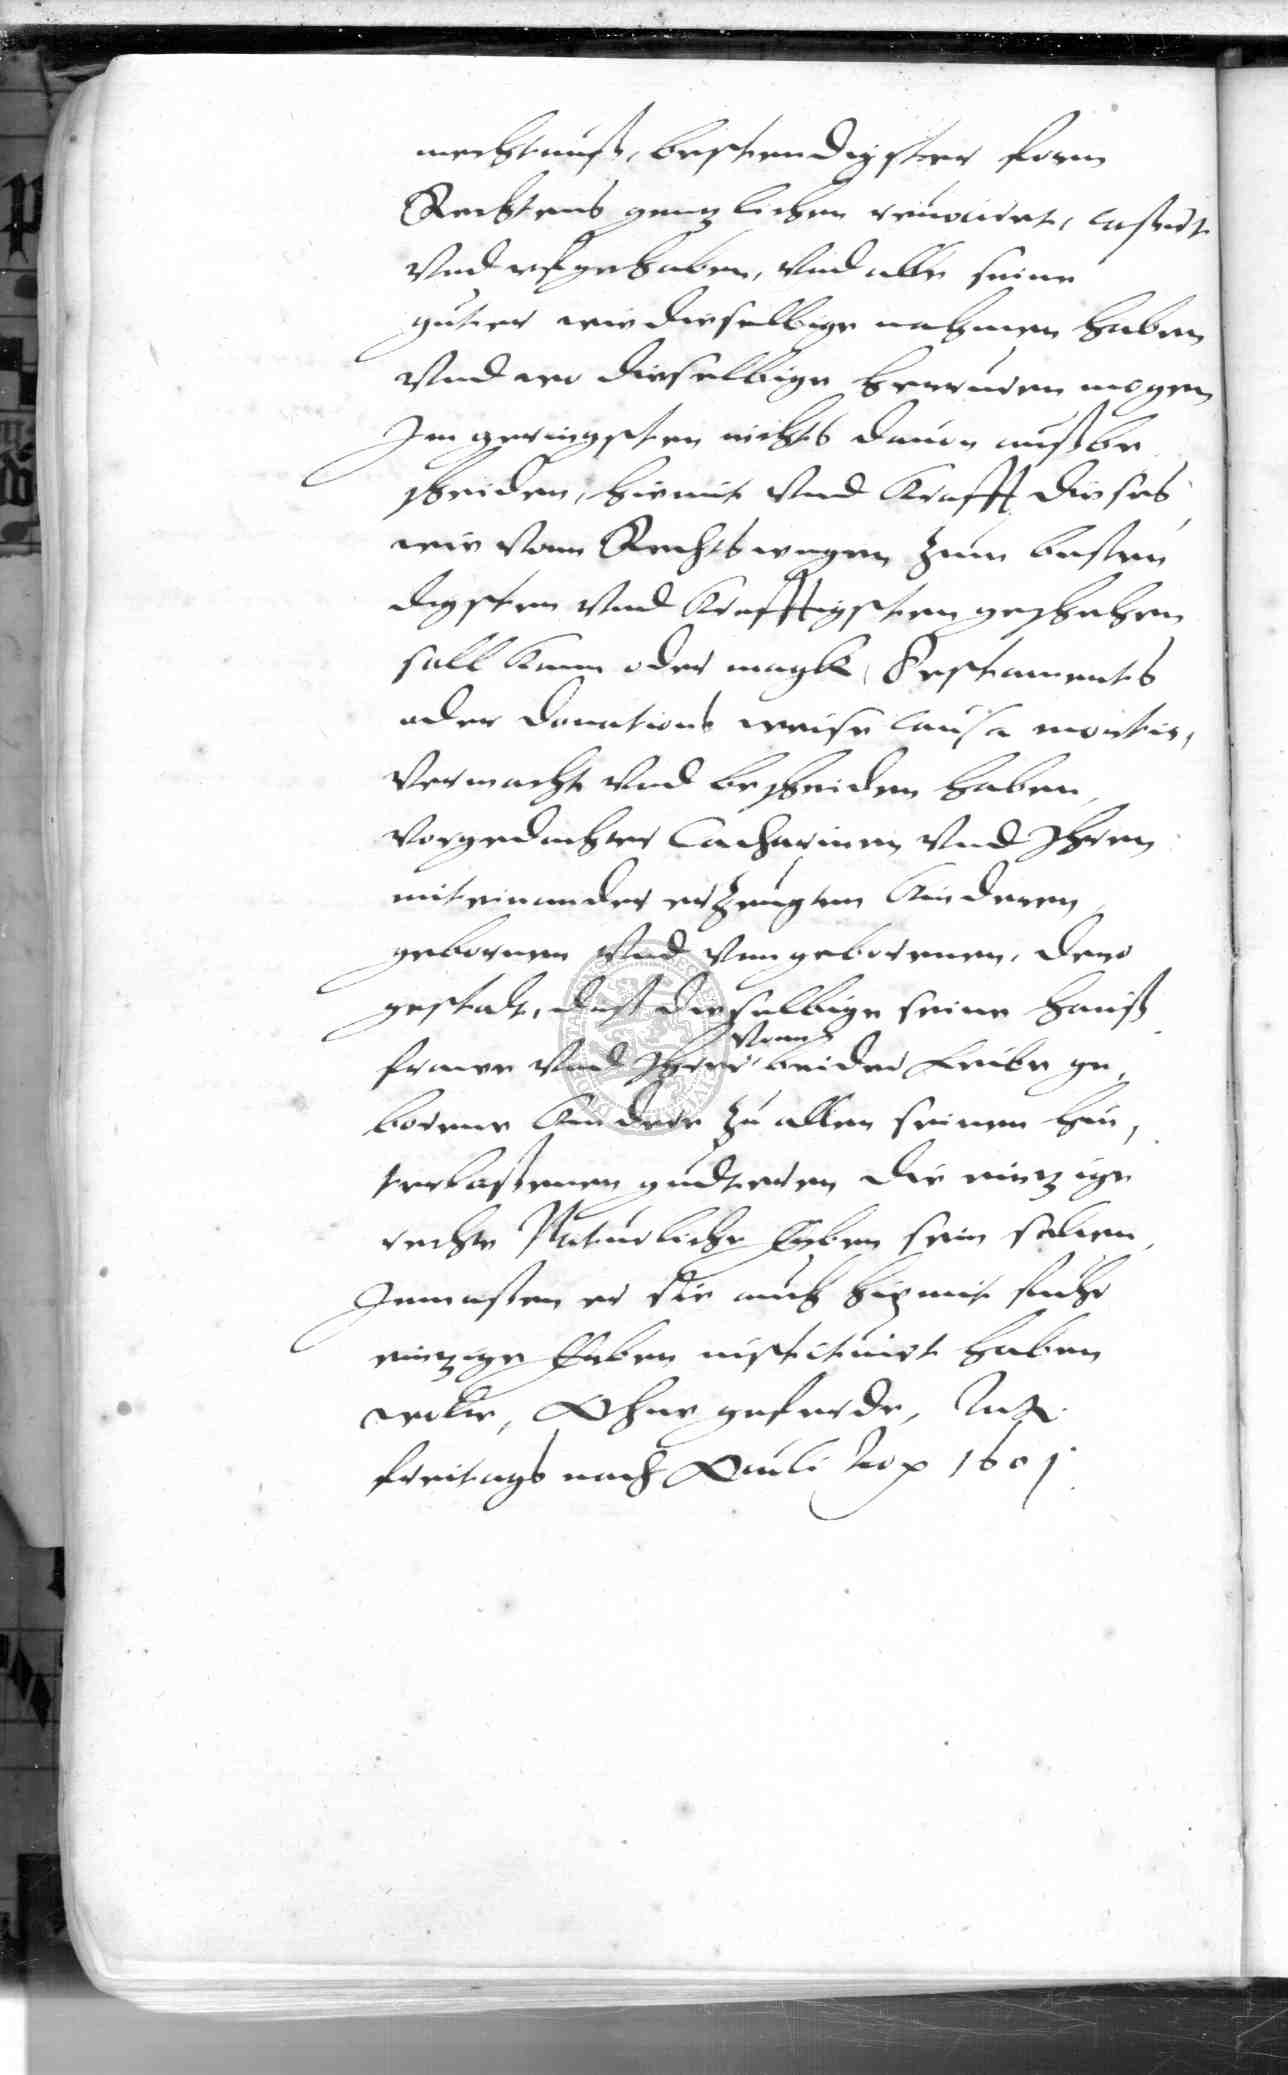 mechtnuß, bestendigster form
Rechtens gentzlichen reuociret, cassirt
Vnd vfgehaben, Vnd alle seine
guter wie dieselbige nahmen haben
Vnd wo dieselbige herruren mogen
Im geringsten nichts dauon außbe
scheiden, hiemit Vnd Krafft dieses
wie vonn Rechtswegen zum besten
digsten Vnd Krefftigsten geschehen
soll kann oder magk, Testaments
oder donations weise causa mortis,
Vermacht Vnd bescheiden haben,
Vorgedachter Catharinen Vnd Ihren
miteinander erzeugten Kinderen
gebornen Vnd vngebornen, dero
gestalt, daß dieselbige seine hauß
frawe Vnd Ihrer vonn beider Leibe ge,
borene Kindere zu allen seinen hin,
terlaßenen gudteren die eintzige
rechte Naturliche Erben sein sollen,
Inmaßen er sie auch hiemit fuhr
eintzige Erben instituirt haben
wolle, Ohne geferde, Act.
freitags nach Pauli 1601